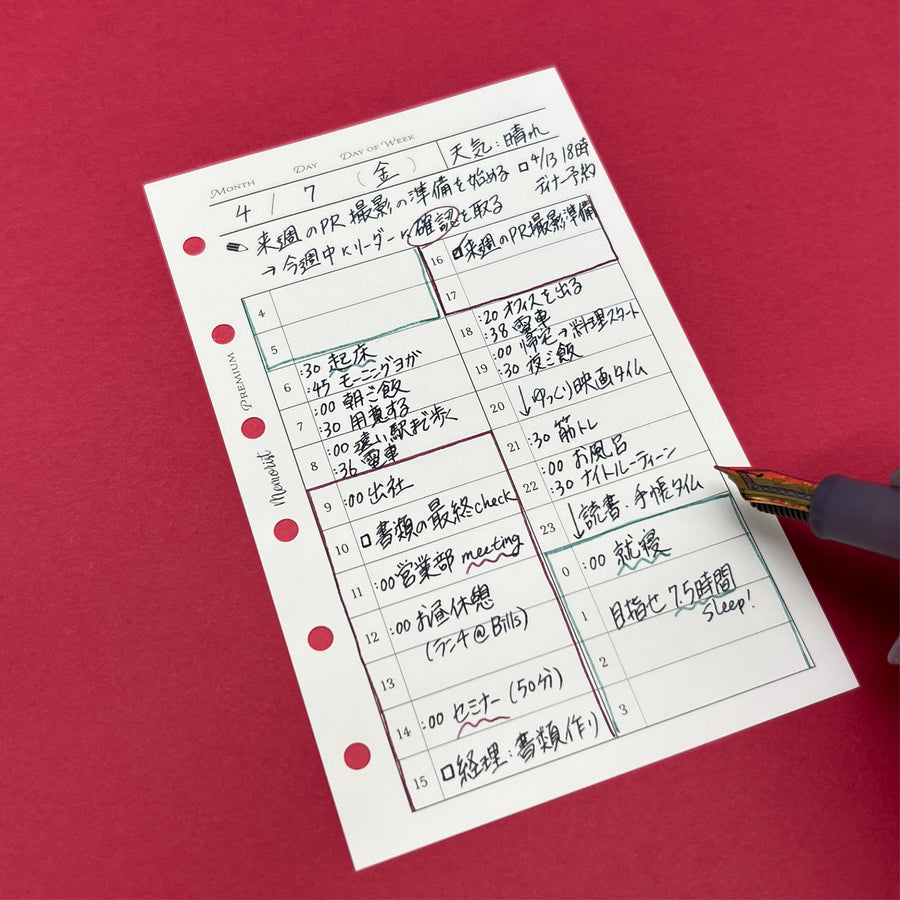 MONTH DAY DAY OF WEEK
4 / 7 (金) 天気:晴れ
来週のPR撮影の準備を始める
→今週中にリーダーに確認を取る
□4/13 18時
ディナー予約
PREMIUM
Memorist
4
5
:30 起床
6 :45 モーニングヨガ
:00 朝ご飯
7 :30 用意する
:00 遠い駅まで歩く
8 :36 電車
9 :00 出社
10 □書類の最終check
11 :00 営業部 meeting
12 :00 お昼休憩
(ランチ@Bills)
13
14 :00 セミナー(50分)
15 □経理:書類作り
16 □来週のPR撮影準備
17
:20 オフィスを出る
18 :38 電車
:00 帰宅→料理スタート
19 :30 夜ご飯
20 ↓ゆっくり映画タイム
21 :30 筋トレ
:00 お風呂
22 :30 ナイトルーティーン
23 ↓読書・手帳タイム
0 :00 就寝
1 目指せ7.5時間
sleep!
2
3